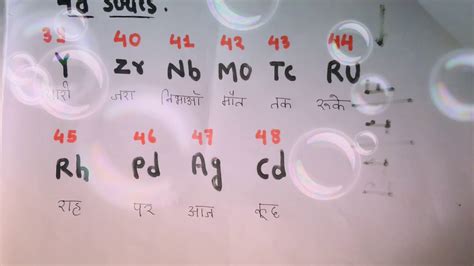 4d series.
39 40 41 42 43 44
Y Zr Nb MO Tc RU
यारी जरा निभाओ मौत तक रूके
45 46 47 48
Rh Pd Ag Cd
राह पर आज कूछ